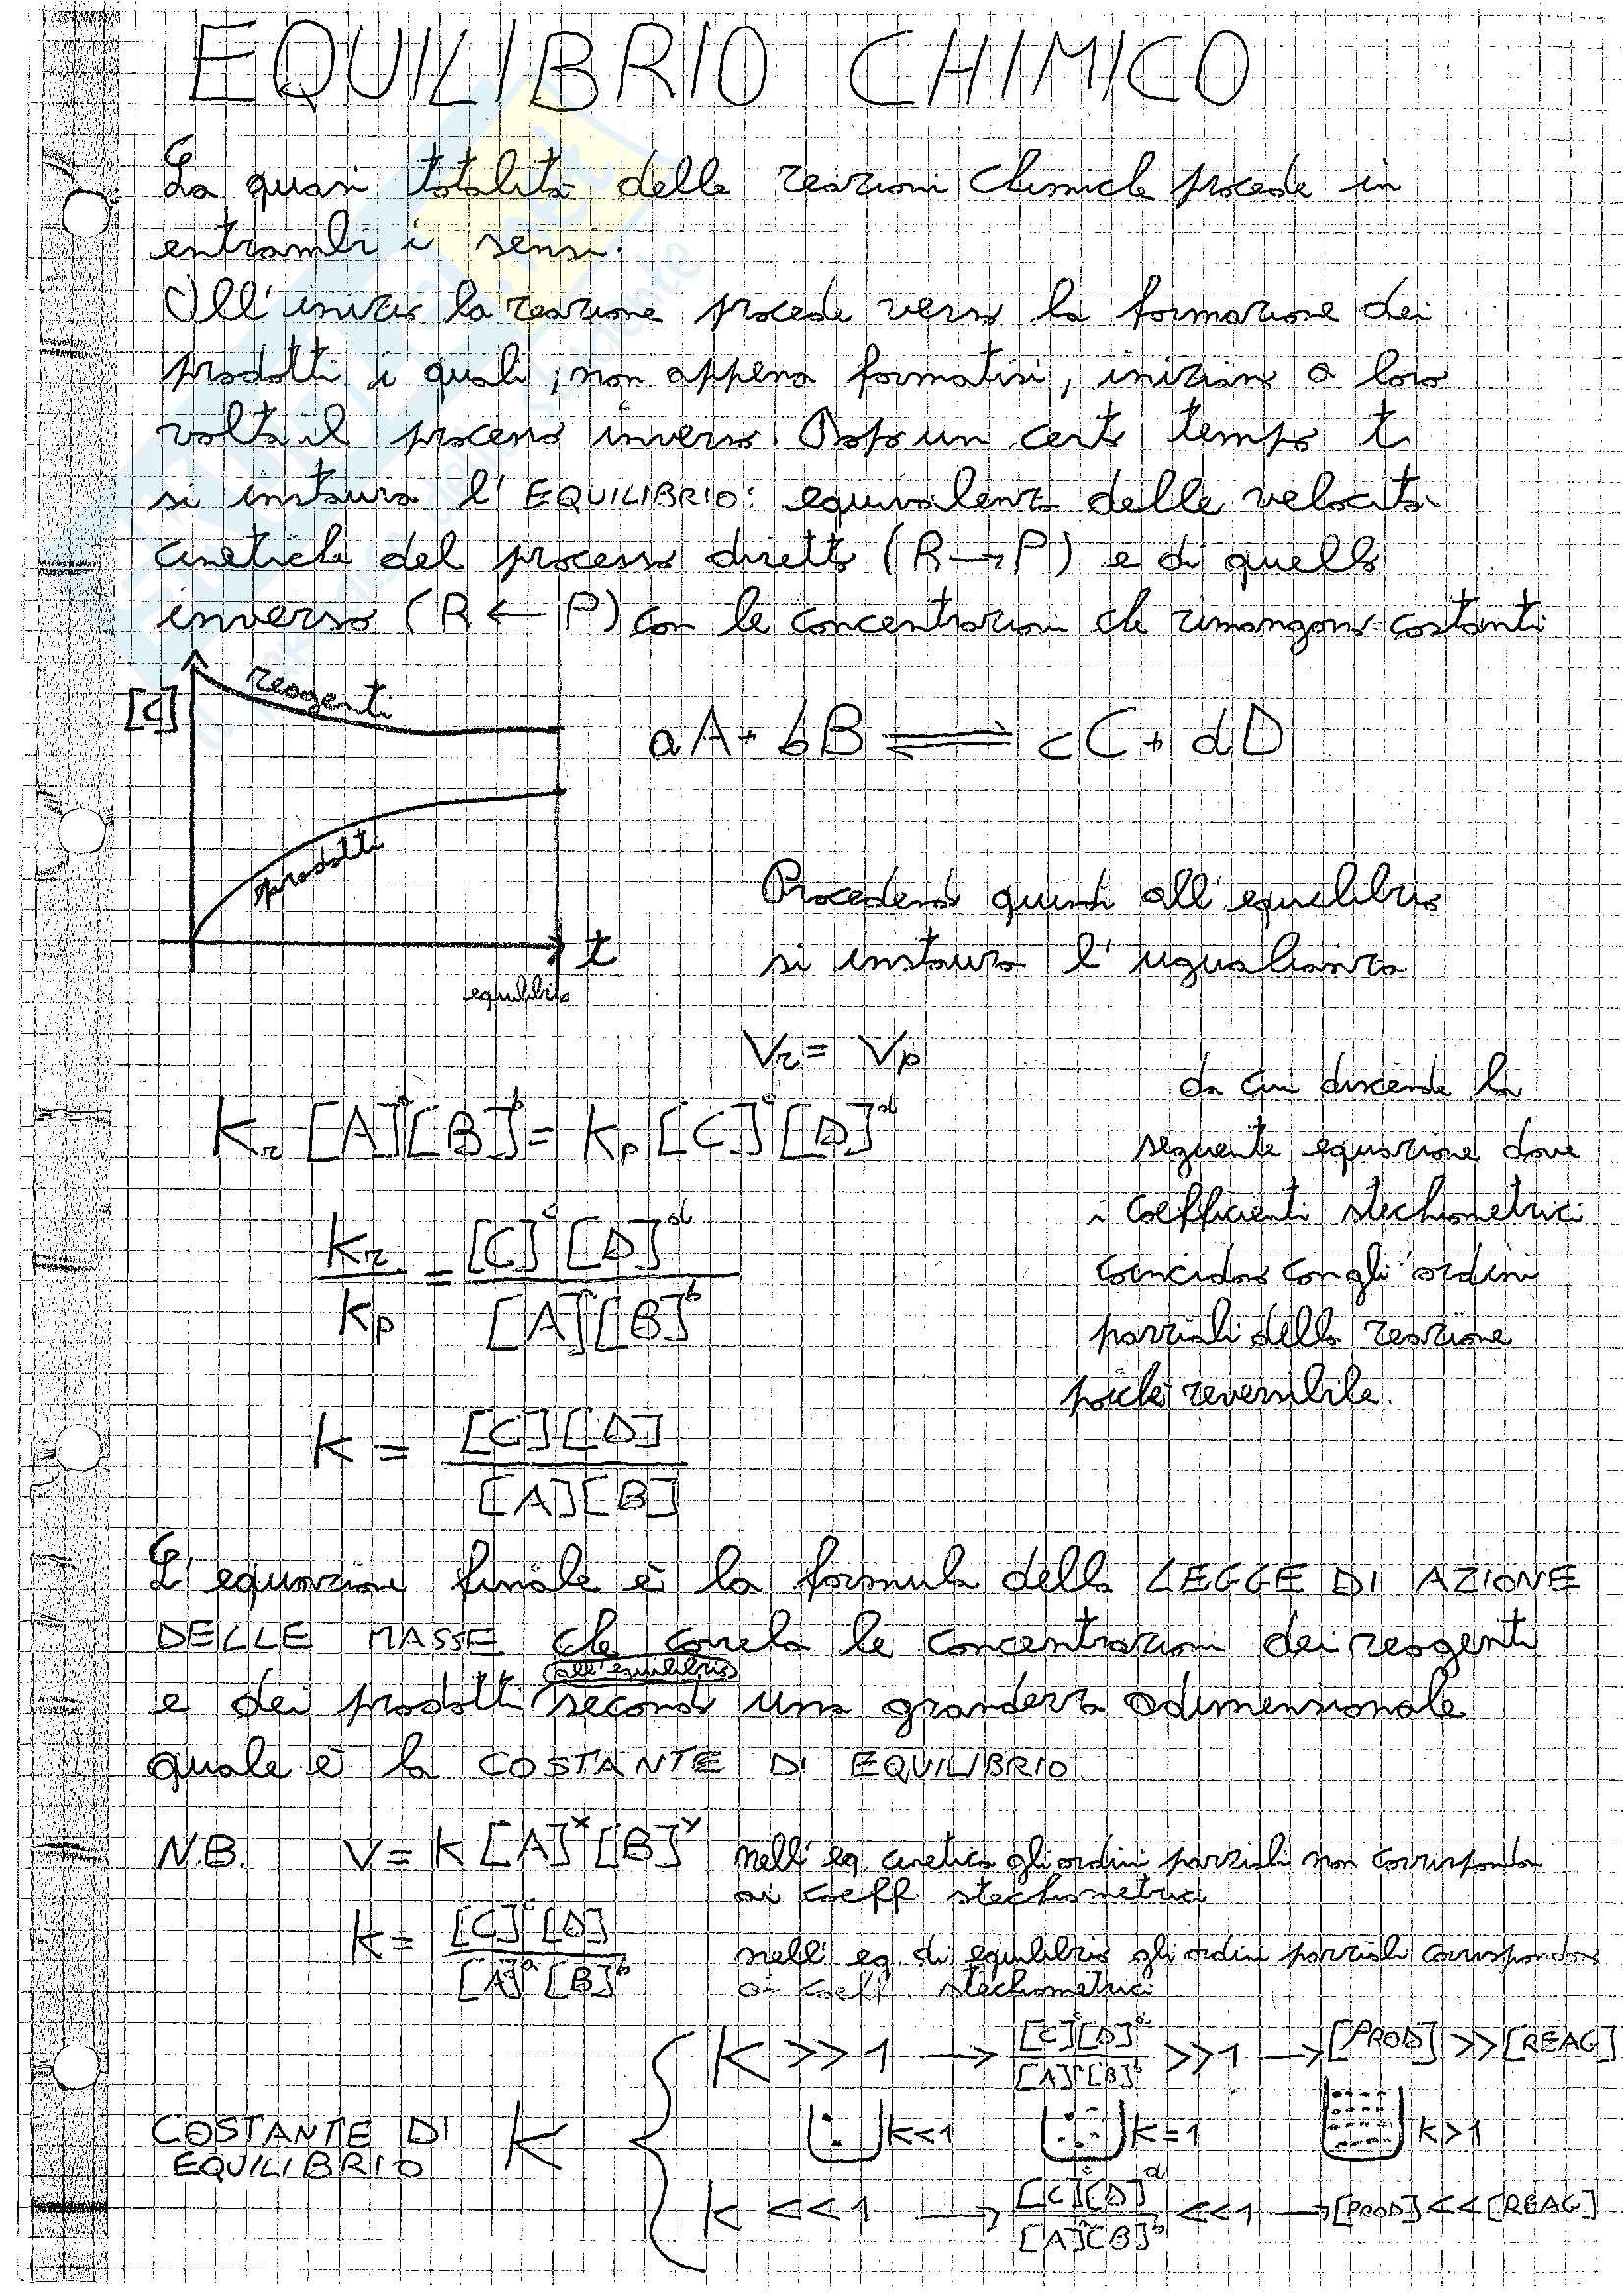 EQUILIBRIO CHIMICO
La quasi totalità delle reazioni chimiche procede in
entrambi i sensi.
All'inizio la reazione procede verso la formazione dei
prodotti i quali, non appena formatisi, iniziano a loro
volta il processo inverso. Dopo un certo tempo t
si instaura l'EQUILIBRIO: equivalenza delle velocità
cinetiche del processo diretto (R→P) e di quello
inverso (R←P) con le concentrazioni che rimangono costanti
[C]
reagenti
prodotti
t
equilibrio
aA + bB ⇌ cC + dD
Procedendo quindi all'equilibrio
si instaura l'uguaglianza
Vr = Vp
da cui discende la
seguente equazione dove
i coefficienti stechiometrici
coincidono con gli ordini
parziali della reazione
poiché reversibile.
Kr [A]^a [B]^b = Kp [C]^c [D]^d
Kr / Kp = [C]^c [D]^d / [A][B]^b
K = [C][D] / [A][B]
L'equazione finale è la formula della LEGGE DI AZIONE
DELLE MASSE che correla le concentrazioni dei reagenti
(all'equilibrio)
e dei prodotti secondo una grandezza adimensionale
quale è la COSTANTE DI EQUILIBRIO
N.B. V = K [A]^x [B]^y nell'eq. cinetica gli ordini parziali non corrispondono
ai coeff stechiometrici
K = [C]^c [D] / [A]^a [B]^b nell'eq. di equilibrio gli ordini parziali corrispondono
ai coeff. stechiometrici
K >> 1 → [C]^c [D]^d / [A]^a [B]^b >> 1 → [PROD] >> [REAG]
COSTANTE DI EQUILIBRIO K
K<1 K=1 K>1
K << 1 → [C]^c [D]^d / [A]^a [B]^b << 1 → [PROD] << [REAG]